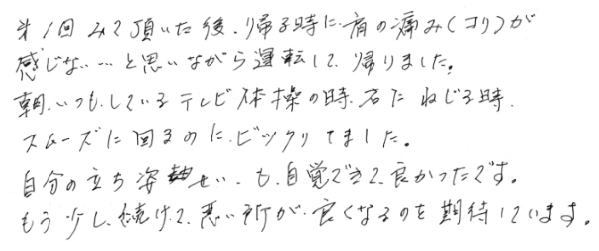 第1回 みて頂いた後、帰る時に、肩の痛み(コリ)が
感じない…と思いながら運転して、帰りました。
朝、いつも、している テレビ体操の時、右左 ねじる時、
スムーズに回るのに、ビックリてました。
自分の立ち姿せい、も、自覚できて、良かったです。
もう少し、続けて、悪い所が、良くなるのを期待しています。